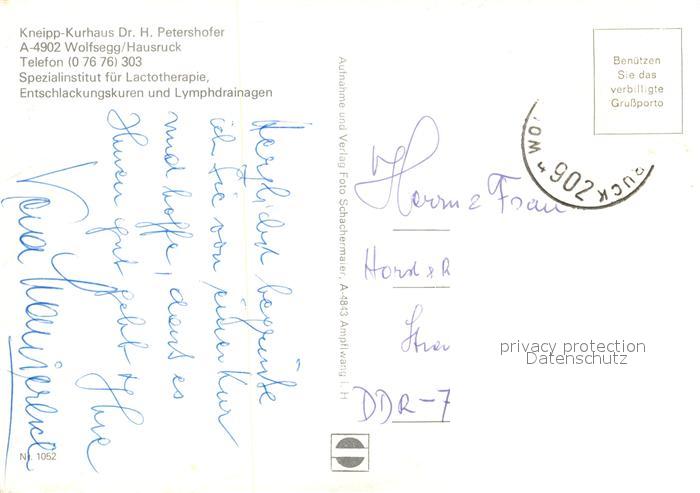 Kneipp-Kurhaus Dr. H. Petershofer
A-4902 Wolfsegg/Hausruck
Telefon (0 76 76) 303
Spezialinstitut für Lactotherapie,
Entschlackungskuren und Lymphdrainagen
Herzlichst begrüße
ich Sie von einer Kur
und hoffe, dass es
Ihnen gut geht. Ihre
Nr. 1052
Aufnahme und Verlag Foto Schachermaier, A-4843 Ampflwang i. H
Benützen
Sie das
verbilligte
Grußporto
4902
RUCK
Herrn & Frau
Horst & R
DDR-7
privacy protection
Datenschutz